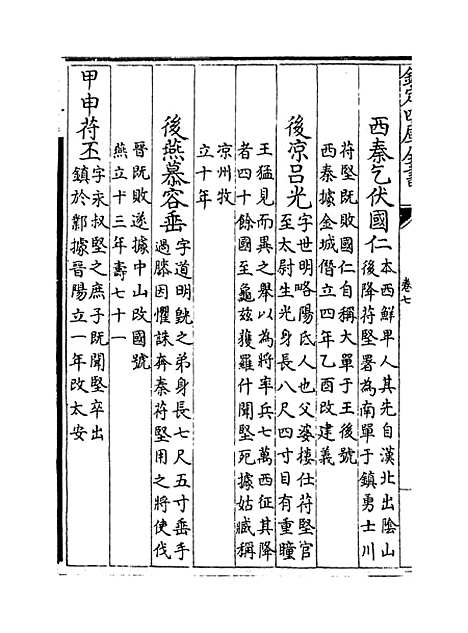 欽定四庫全書
卷七
西秦乞伏國仁本西鮮卑人其先自漢北出陰山
後降苻堅署為南單于鎮勇士川
苻堅既敗國仁自稱大單于王後號
西秦據金城僭立四年乙酉改建義
後凉吕光字世明略陽氐人也父婆樓仕苻堅官
至太尉生光身長八尺四寸目有重瞳
王猛見而異之舉以為將率兵七萬西征其降
者四十餘國至龜兹獲羅什聞堅死據姑臧稱
凉州牧
立十年
後燕慕容垂字道明皝之弟身長七尺五寸垂手
過膝因懼誅奔秦苻堅用之將使伐
晉既敗遂據中山改國號
燕立十三年壽七十一
甲申苻丕字永叔堅之庶子既聞堅卒出
鎮於鄴據晉陽立一年改太安